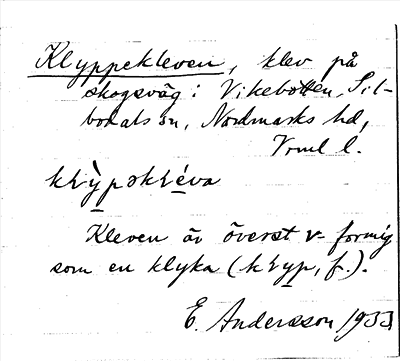 Klyppekleven, klev på
skogsväg i Vikebotten, Sil-
bodals sn, Nordmarks hd,
Vrml l.
Kleven är överst v-formig
som en klyka (klyp, f.).
E. Andersson 1933